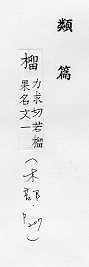 類篇
榴 力求切若榴
果名文一
(木部 p.207)